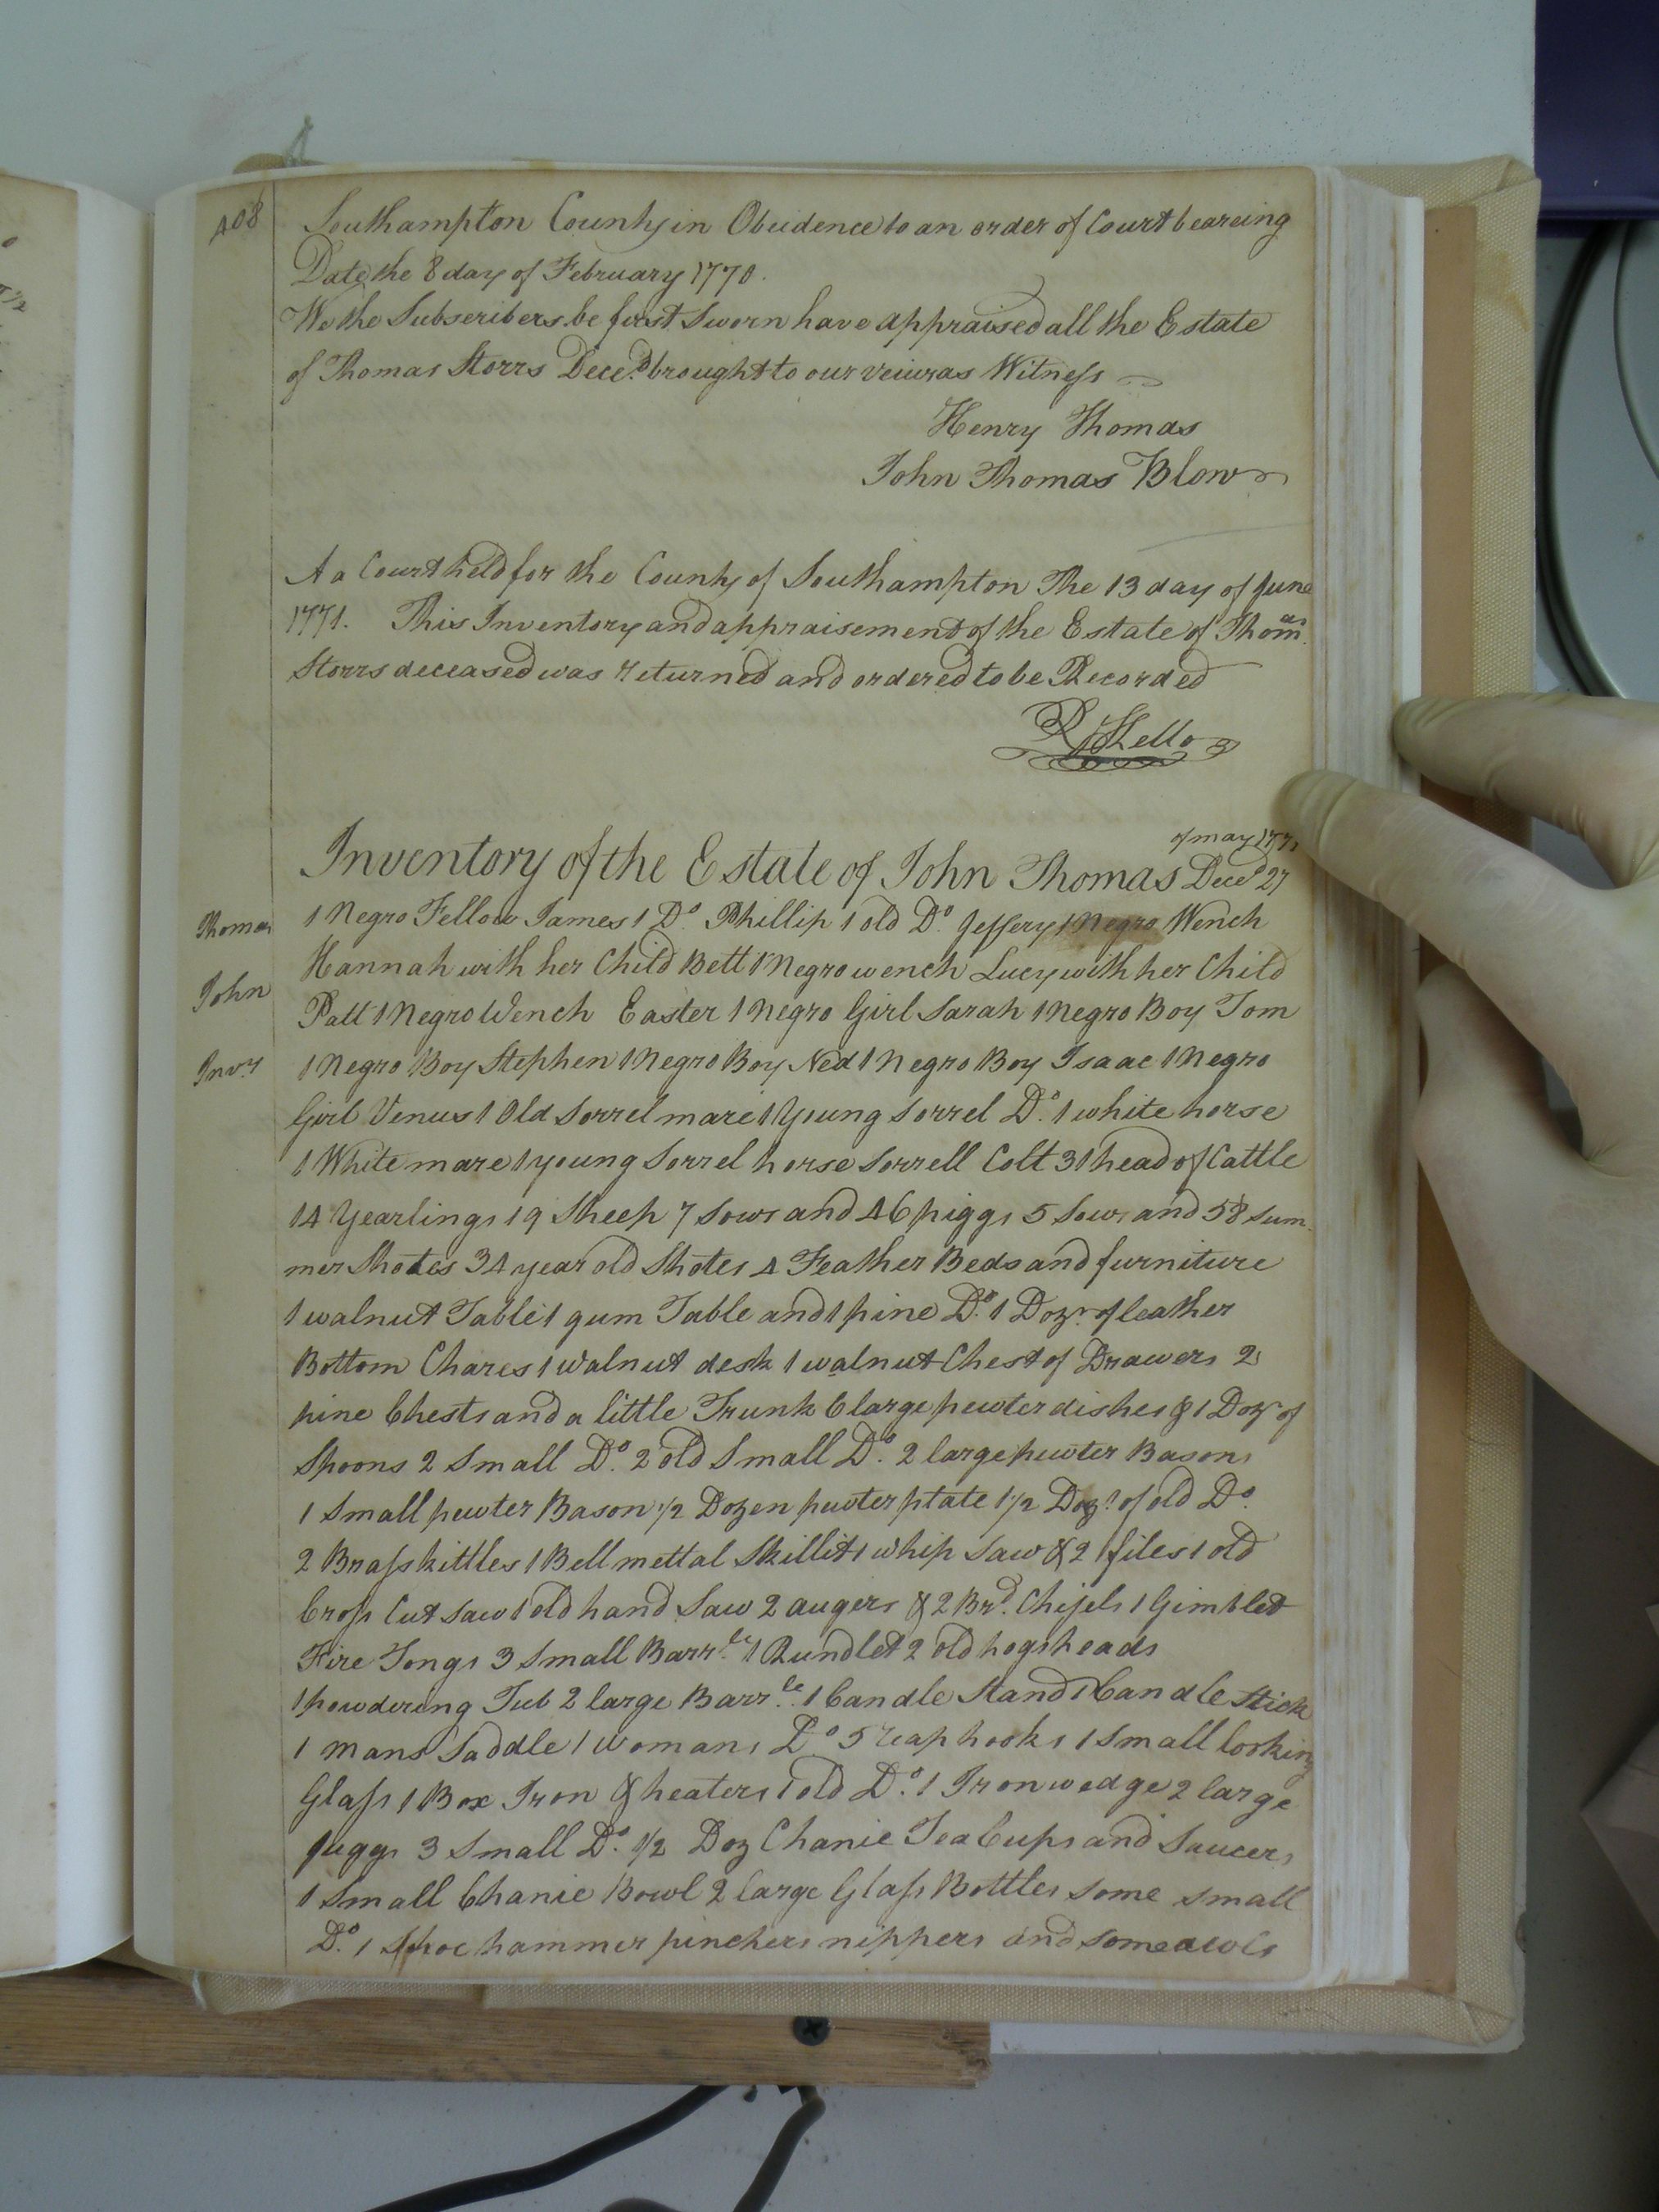 408
Southampton County in Obeidence to an order of Court beareing
Date the 8 day of February 1770.
We the Subscribers be first Sworn have appraised all the Estate
of Thomas Storrs Deced. brought to our veiw as Witness
Henry Thomas
John Thomas Blow
At a Court held for the County of Southampton The 13 day of June
1771. This Inventory and appraisement of the Estate of Thomas
Storrs deceased was returned and ordered to be Recorded
R Kello
of may 1771
Inventory of the Estate of John Thomas Decd. 27
Thomas
1 Negro Fellow James 1 Do. Phillip 1 old Do. Jeffery 1 Negro Wench
Hannah with her Child Bett 1 Negro wench Lucy with her Child
John
Patt 1 Negro Wench Easter 1 Negro Girl Sarah 1 Negro Boy Tom
Invy
1 Negro Boy Stephen 1 Negro Boy Ned 1 Negro Boy Isaac 1 Negro
Girl Venus 1 Old Sorrel mare 1 Young Sorrel Do. 1 white horse
1 White mare 1 young Sorrel horse Sorrell Colt 31 head of Cattle
14 Yearlings 19 Sheep 7 Sows and 46 piggs 5 Sows and 58 Sum
mer Shotes 34 year old Shotes 4 Feather Beds and furniture
1 walnut Table 1 gum Table and 1 pine Do. 1 Dozn. of leather
Bottom Chares 1 walnut desk 1 walnut Chest of Drawers 2
pine Chests and a little Trunk 6 large pewter dishes & 1 Dozn of
Spoons 2 Small Do. 2 old Small Do. 2 large pewter Basons
1 Small pewter Bason 1/2 Dozen pewter plate 1 1/2 Dozn. of old Do.
2 Brass kittles 1 Bell mettal Skillit 1 whip Saw & 2 files 1 old
Cross Cut Saw 1 old hand Saw 2 augers & 2 Brd. Chisels 1 Gimblet
Fire Tongs 3 Small Barrls. 1 Rundlet 2 old hogsheads
1 powdering Tub 2 large Barrls. 1 Candle Stand 1 Candle Stick
1 mans Saddle 1 Womans Do 5 reap hooks 1 Small looking
Glass 1 Box Iron & heaters 1 old Do. 1 Iron wedge 2 large
juggs 3 Small Do. 1/2 Doz Chanie Tea Cups and Saucers
1 Small Chanie Bowl 2 large Glass Bottles some small
Do. 1 Shoe hammer pinchers nippers and some awls